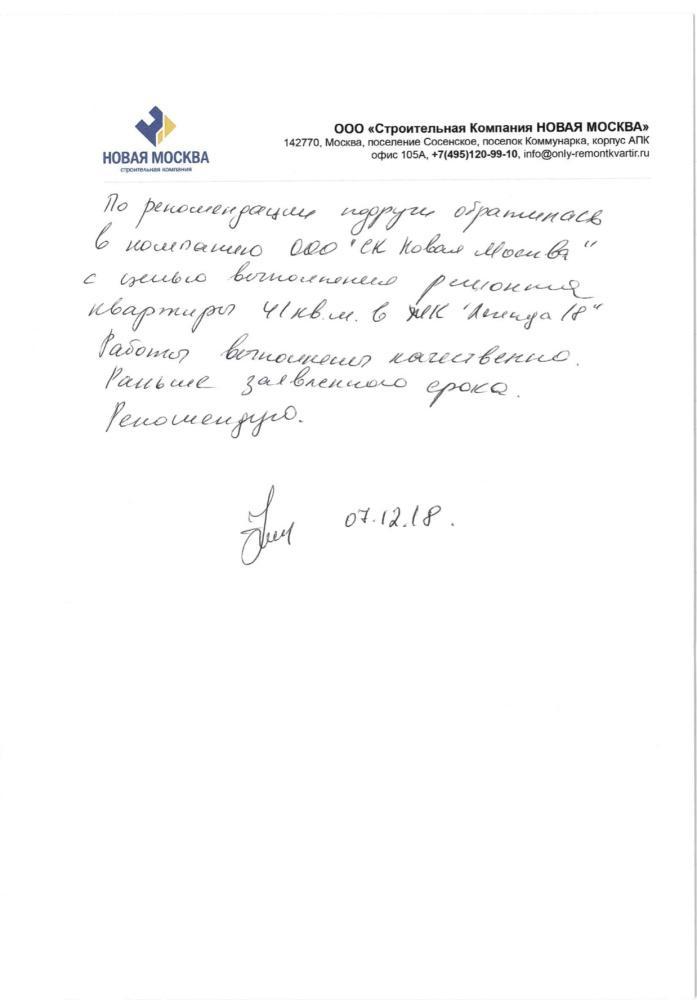 НОВАЯ МОСКВА
строительная компания
ООО «Строительная Компания НОВАЯ МОСКВА»
142770, Москва, поселение Сосенское, поселок Коммунарка, корпус АПК
офис 105А, +7(495)120-99-10, info@only-remontkvartir.ru
По рекомендации подруги обратилась
в компанию ООО "СК Новая Москва"
с целью выполнения ремонта
квартиры 41 кв.м. в ЖК "Легенда 18"
Работы выполнены качественно.
Раньше заявленного срока.
Рекомендую.
07.12.18.